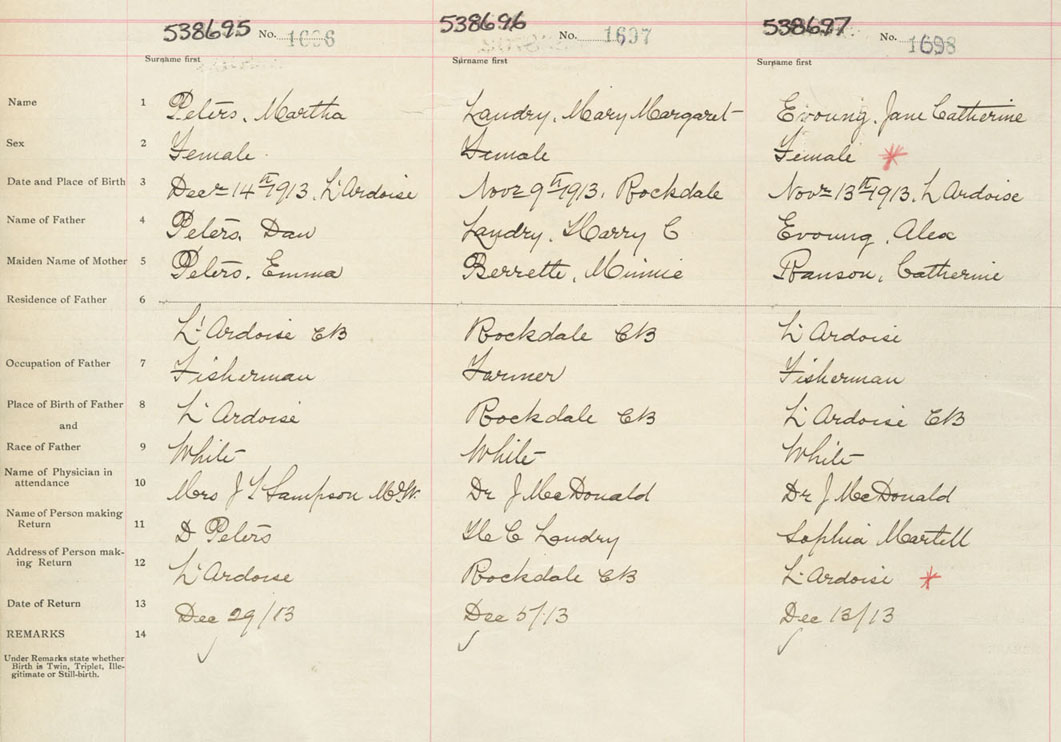 538695 No. 1696 538696 No. 1697 538697 No. 1698
Surname first Surname first Surname first
Name 1 Peters, Martha Landry, Mary Margaret Evoung, Jane Catherine
Sex 2 Female Female Female *
Date and Place of Birth 3 Decr 14th 1913, L'Ardoise Novr 9th 1913, Rockdale Novr 13th 1913, L'Ardoise
Name of Father 4 Peters, Dan Landry, Harry C Evoung, Alex
Maiden Name of Mother 5 Peters, Emma Berrette, Minnie Ranson, Catherine
Residence of Father 6
L'Ardoise CB Rockdale CB L'Ardoise
Occupation of Father 7 Fisherman Farmer Fisherman
Place of Birth of Father 8 L'Ardoise Rockdale CB L'Ardoise CB
and
Race of Father 9 White White White
Name of Physician in
attendance 10 Mrs J Sampson Dr J McDonald Dr J McDonald
Name of Person making
Return 11 D Peters H C Landry Sophia Martell
Address of Person mak-
ing Return 12 L'Ardoise Rockdale CB L'Ardoise *
Date of Return 13 Dec 29/13 Dec 5/13 Dec 13/13
REMARKS 14
Under Remarks state whether
Birth is Twin, Triplet, Ille-
gitimate or Still-birth.